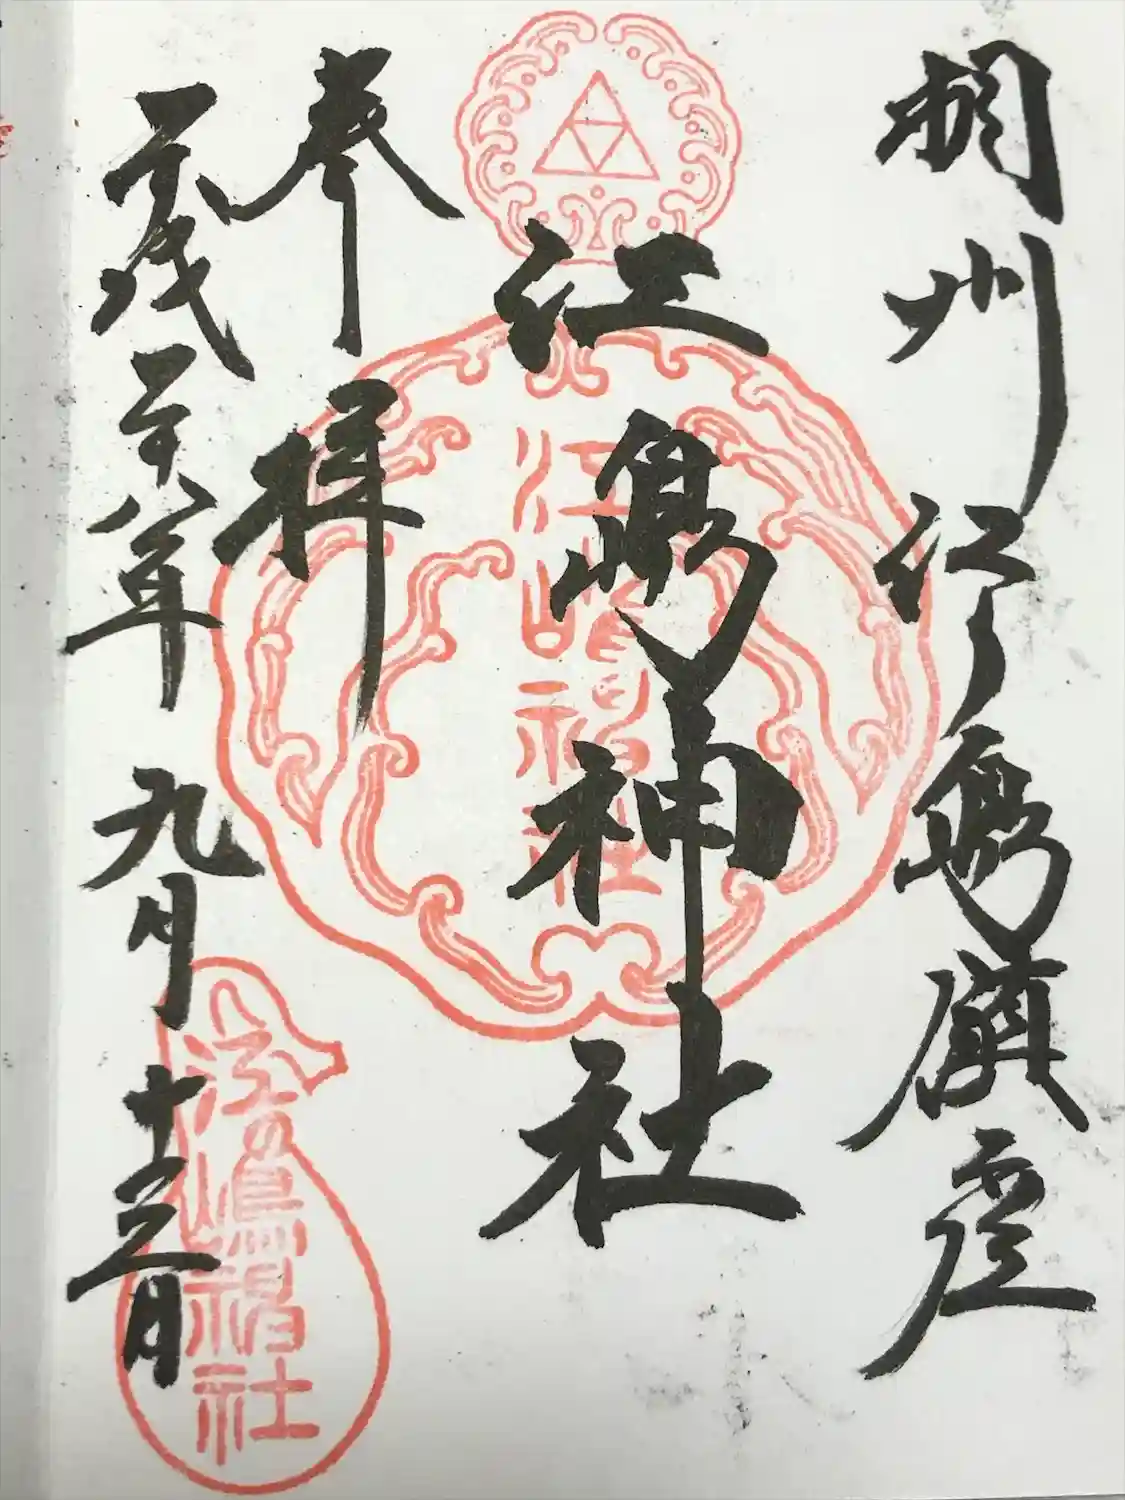 相州江ノ島鎮座
江島神社
奉拝
平成二十八年九月十三日
江島神社
江嶋神社